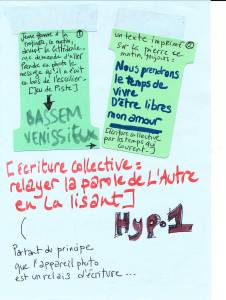 ①
Jeune femme à la
le matin,
devant la
me demande d'aller
prendre en photo le
message qu'il a écrit
en bas de l'escalier.
[Jeu de Piste]
BASSEM
VENISSIEUX
②
un texte imprimé
sur la pierre ce
matin, toujours:
Nous prendrons
le temps de
vivre
D'être libres
mon amour
Écriture collective
par les temps qui
courent.
[Écriture collective =
relayer la parole de L'Autre
en la lisant]
Hyp.1
Partant du principe
que l'appareil photo
est un relais d'écriture...